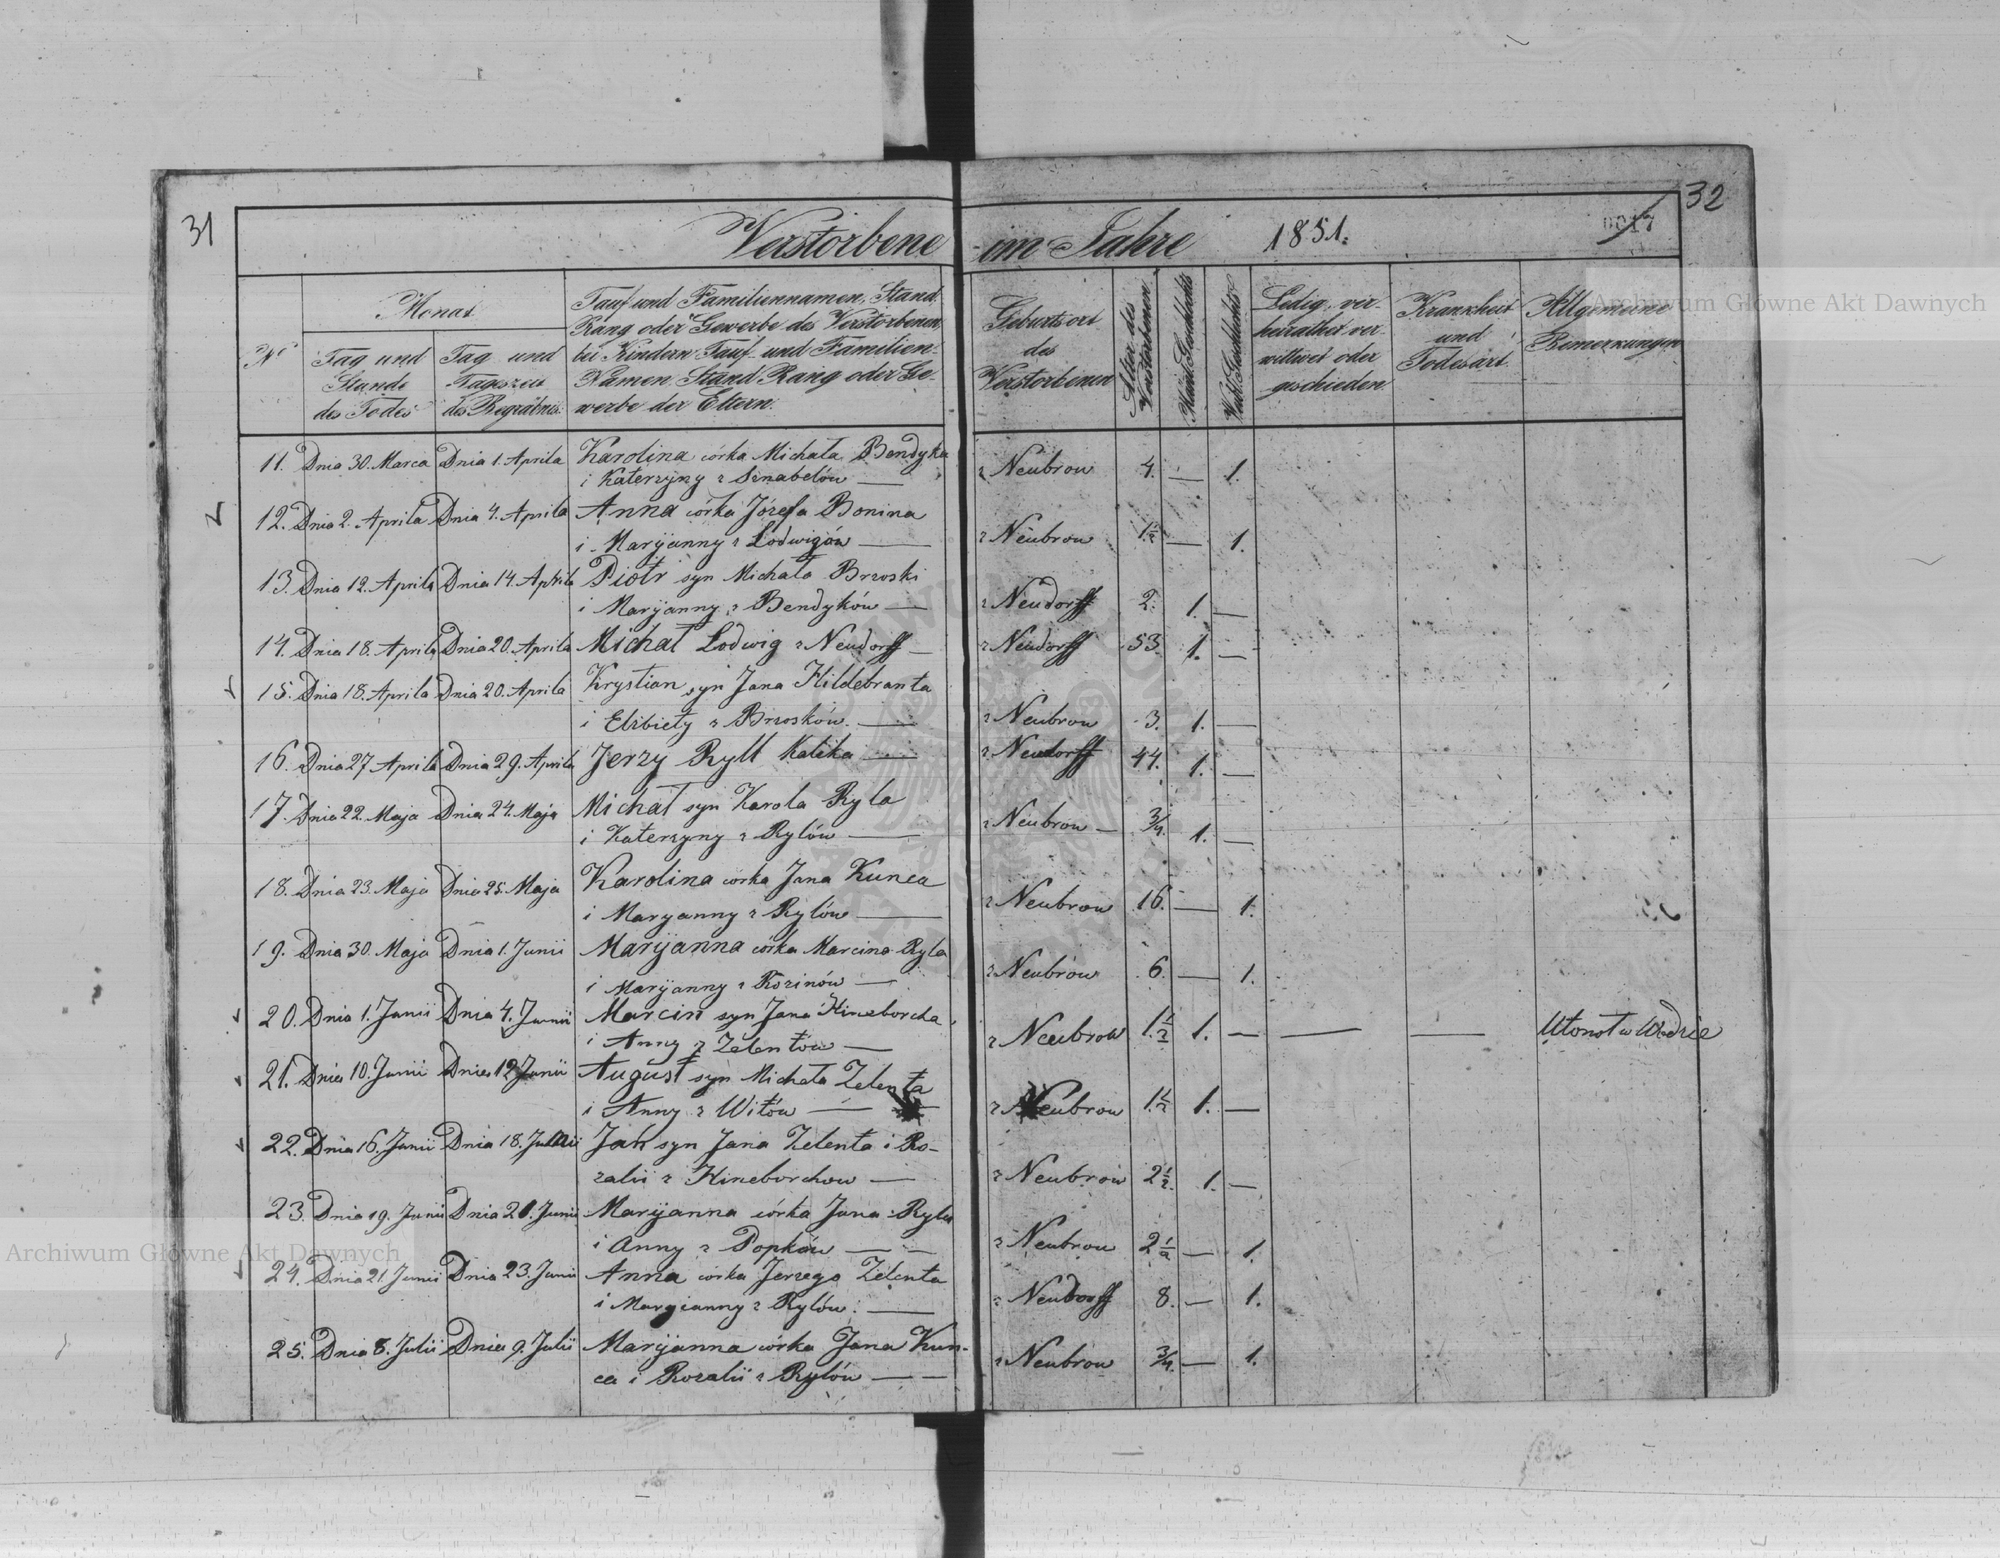 31
32
Verstorbene im Jahre 1851.
0017
Archiwum Główne Akt Dawnych
No
Monat
Tag und
Stunde
des Todes
Tag und
Tageszeit
des Begräbnis.
Tauf und Familiennamen, Stand,
Rang oder Gewerbe des Verstorbenen,
bei Kindern Tauf- und Familien-
Namen Stand Rang oder Ge-
werbe der Eltern.
Geburtsort
des
Verstorbenen
Alter des
Verstorbenen
Geschlechts
Weibl. Geschlechts
Ledig, ver-
heirathet ver-
wittwet oder
geschieden
Krankheit
und
Todesart
Allgemeine
Bemerkungen
11. Dnia 30. Marca Dnia 1. Aprila Karolina córka Michała Bendyka
i Katerzyny z Sznabelów — z Neubrow 4. — 1.
12. Dnia 2. Aprila Dnia 4. Aprila Anna córka Józefa Bonina
i Maryanny z Lodwigów — z Neubrow 1½ — 1.
13. Dnia 12. Aprila Dnia 14. Aprila Piotr syn Michała Brzoski
i Maryanny z Bendyków — z Neudorff 2. 1. —
14. Dnia 18. Aprila Dnia 20. Aprila Michał Lodwig z Neudorff — z Neudorff 53. 1. —
15. Dnia 18. Aprila Dnia 20. Aprila Krystian syn Jana Hildebranta
i Elżbiety z Brzosków. — z Neubrow 3. 1. —
16. Dnia 27 Aprila Dnia 29. Aprila Jerzy Ryll Kalika — z Neudorff 44. 1. —
17. Dnia 22. Maja Dnia 24. Maja Michał syn Karola Ryla
i Katerzyny z Rylów — z Neubrow — 3/4. 1. —
18. Dnia 23. Maja Dnia 25. Maja Karolina córka Jana Kunca
i Maryanny z Rylów — z Neubrow 16. — 1.
19. Dnia 30. Maja Dnia 1. Junii Maryanna córka Marcina Ryla
i Maryanny z Rozinów — z Neubrow 6. — 1.
20. Dnia 1. Junii Dnia 4. Junii Marcin syn Jana Hineborcha
i Anny z Zelentów — z Neubrow 1.½ 1. — — — Utonoł w Wodzie
21. Dnia 10. Junii Dnia 12 Junii August syn Michała Zelenta
i Anny z Witów — z Neubrow 1.½ 1. —
22. Dnia 16. Junii Dnia 18. Junii Jan syn Jana Zelenta i Ro-
zalii z Hineborchow — z Neubrow 2½. 1. —
23. Dnia 19. Junii Dnia 21. Junii Maryanna córka Jana Ryla
i Anny z Popków — — z Neubrow 2½ — 1.
Archiwum Główne Akt Dawnych
24. Dnia 21. Junii Dnia 23. Junii Anna córka Jerzego Zelenta
i Maryianny z Rylów. — z Neudorff 8. — 1.
25. Dnia 8. Julii Dnia 9. Julii Maryanna córka Jana Kun-
ca i Rozalii z Rylów — — z Neubrow 3/4. — 1.